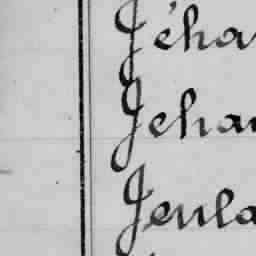 Jéha
Jehan
Jenla